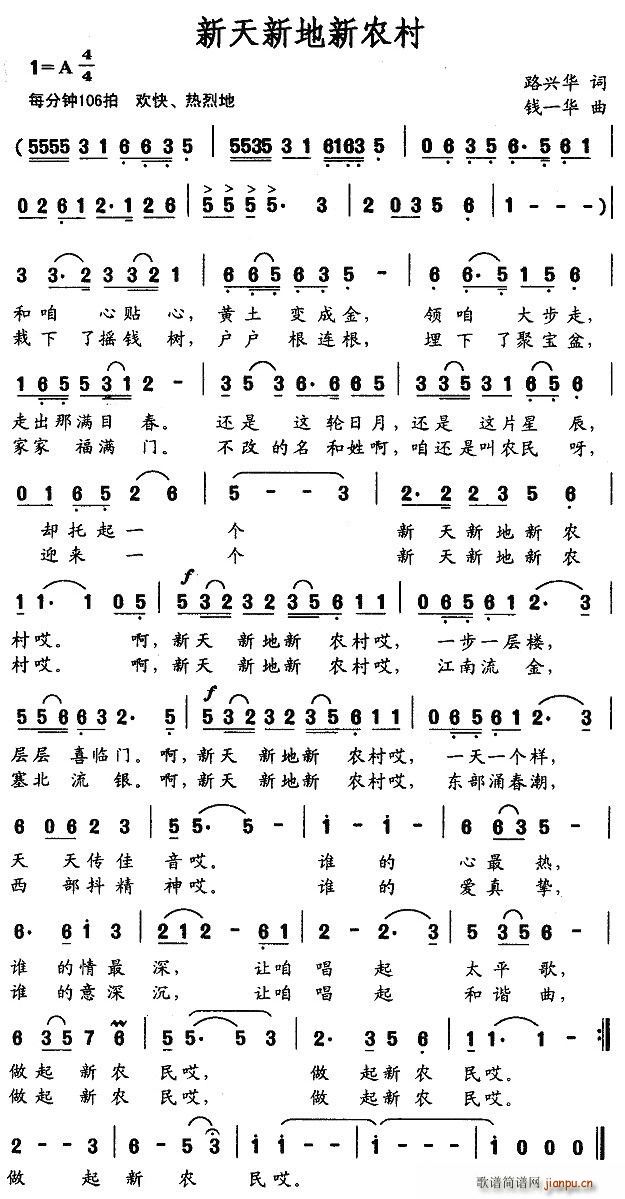 新天新地新农村
1=A 4/4
路兴华 词
每分钟106拍 欢快、热烈地
钱一华 曲
(5555 3 1 6 6 3 5 | 5535 3 1 6163 5 | 0 6 3 5 6· 5 6 1 |
0 2 6 1 2· 1 2 6 | 5 5 5 5· 3 | 2 0 3 5 6 | 1 - - -)|
3 3· 2 3 3 2 1 | 6 6 5 6 3 5 - | 6 6· 5 1 5 6
和咱 心贴 心, 黄土 变成金, 领咱 大步走,
栽下 了摇钱 树, 户户 根连根, 埋下 了聚宝盆,
1 6 5 5 3 1 2 - | 3 5 3 6· 6 6 5 | 3 3 5 3 1 6 5 6 |
走出那满目 春。 还是 这 轮日月,还是 这片星 辰,
家家 福满 门。 不改 的名 和姓啊,咱还是叫农民 呀,
0 1 6 5 2 6 | 5 - - 3 | 2· 2 2 3 5 6
却托起一 个 新 天新地新农
迎来 一 个 新 天新地新农
1 1· 1 0 5 | f 5 3 2 3 2 3 5 6 1 1 | 0 6 5 6 1 2· 3
村哎。 啊,新天 新地新 农村哎, 一步一层楼,
村哎。 啊,新天 新地新 农村哎, 江南流 金,
5 5 6 6 3 2· 5 | f 5 3 2 3 2 3 5 6 1 1 | 0 6 5 6 1 2· 3 |
层层 喜临门。啊,新天 新地新 农村哎, 一天一个样,
塞北 流 银。啊,新天 新地新 农村哎, 东部涌春潮,
6 0 6 2 3 | 5 5· 5 - | i - i - | 6 6 3 5 - |
天 天传佳 音哎。 谁 的 心最 热,
西 部抖精 神哎。 谁 的 爱真 挚,
6· 6 i 3 | 2 1 2 - 6 1 | 2 - 2· 3 | 5 3 5 6 -
谁 的情最 深, 让咱 唱 起 太平 歌,
谁 的意深 沉, 让咱 唱 起 和谐 曲,
6 3 5 7 6 | 5 5· 5 3 | 2· 3 5 6 | 1 1· 1 - :|
做起 新农 民哎, 做 起新农 民哎。
做起 新农 民哎, 做 起新农 民哎。
2 - - 3 | 6 - 5 3 | i i - - | i - - - | i 0 0 0 ||
做 起 新 农 民哎。
歌谱简谱网
jianpu.cn